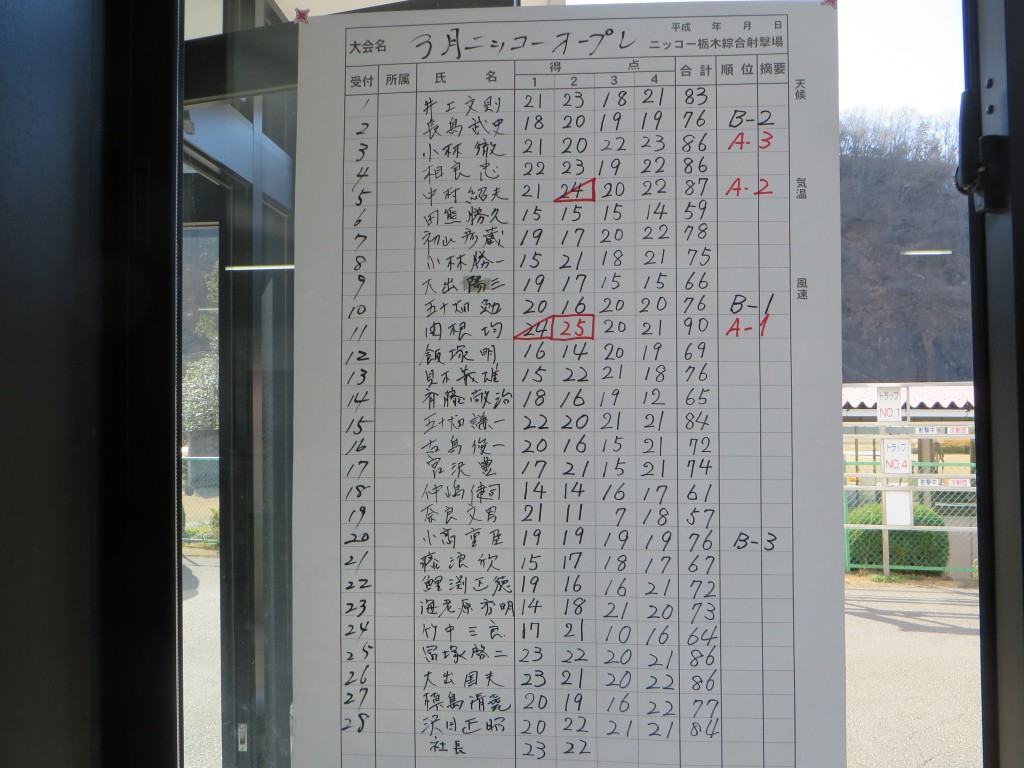 平成 年 月 日
大会名 3月ニッコーオープン ニッコー栃木綜合射撃場
受付 所属 氏 名 得 点 合計 順位 摘要
1 2 3 4
天候
気温
風速
1 井上文則 21 23 18 21 83
2 長島武史 18 20 19 19 76 B-2
3 小林徹 21 20 22 23 86 A-3
4 相良忠 22 23 19 22 86
5 中村紹夫 21 24 20 22 87 A-2
6 勝久 15 15 15 14 59
7 初山彦蔵 19 17 20 22 78
8 小林勝一 15 21 18 21 75
9 大出陽三 19 17 15 15 66
10 五十畑勉 20 16 20 20 76 B-1
11 関根均 24 25 20 21 90 A-1
12 飯塚明 16 14 20 19 69
13 義雄 15 22 21 18 76
14 斉藤敬治 18 16 19 12 65
15 五十畑謙一 22 20 21 21 84
16 古島俊一 20 16 15 21 72
17 宮沢豊 17 21 15 21 74
18 仲嶋健司 14 14 16 17 61
19 奈良文男 21 11 7 18 57
20 小 重 19 19 19 19 76 B-3
21 藤浪欣 15 17 18 17 67
22 鯉渕正徳 19 16 16 21 72
23 海老原秀明 14 18 21 20 73
24 竹中三良 17 21 10 16 64
25 冨塚啓二 23 22 20 21 86
26 大出国夫 23 21 20 22 86
27 島清 20 19 16 22 77
28 沢田正昭 20 22 21 21 84
社長 23 22
トラップ
NO.1
射撃中
トラップ
NO.4
射撃中